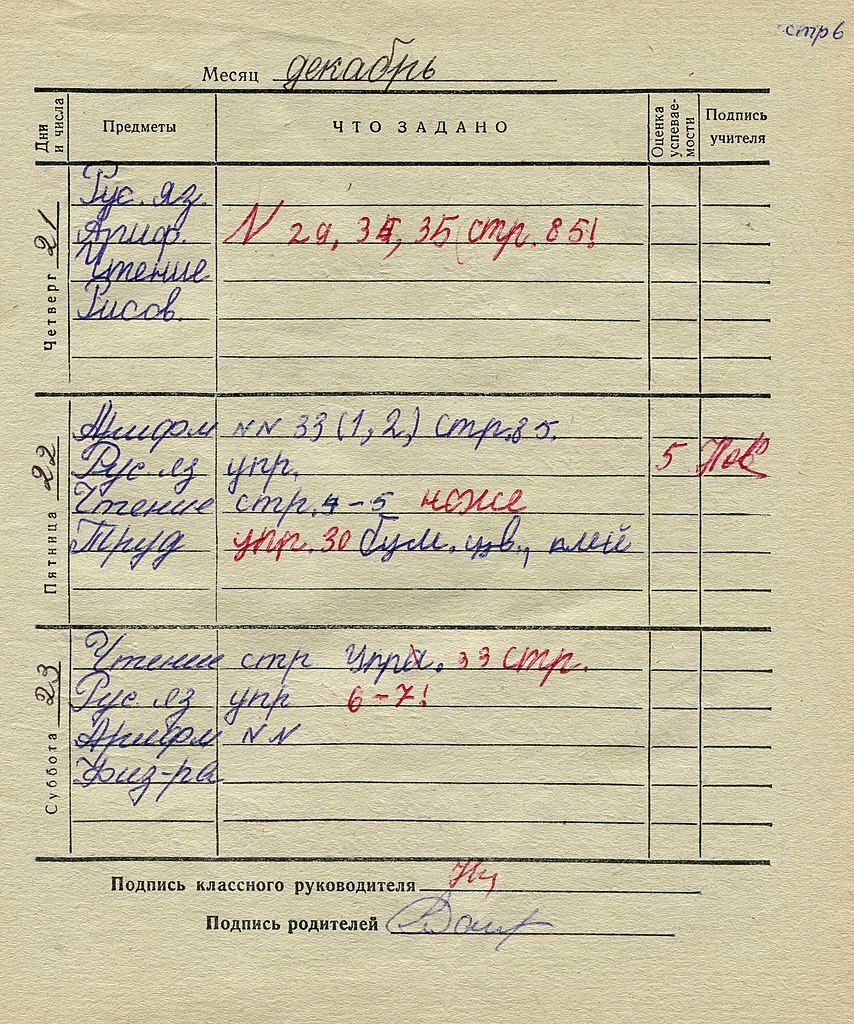 стр 6
Месяц декабрь
Дни и числа Предметы ЧТО ЗАДАНО Оценка успевае-мости Подпись учителя
Четверг 21
Рус. яз.
Ариф. N 29, 34, 35 (стр. 85!
Чтение
Рисов.
Пятница 22
Арифм NN 33 (1, 2) стр. 85.
Рус яз упр. 5
Чтение стр. 4-5
Труд упр. 30 бум. цв., клей
Суббота 23
Чтение стр Упр. 33 стр.
Рус. яз упр 6-7!
Арифм NN
Физ-ра
Подпись классного руководителя
Подпись родителей